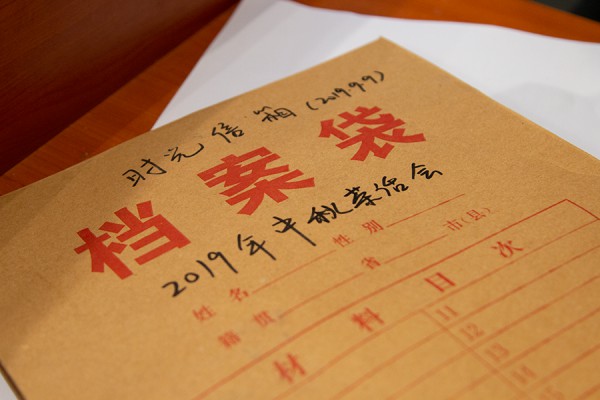 时光信箱（2019.9.9）
档案袋
2019年中秋茶话会
姓名 性别
籍贯 省 市(县)
材料目次
11
12
13
14
15